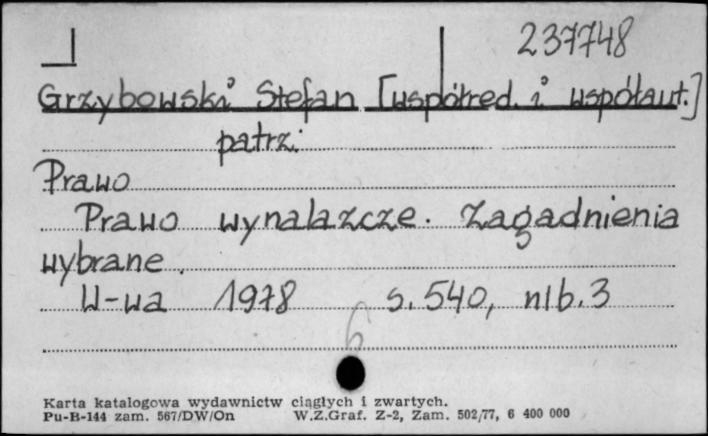 237748
Grzybowski Stefan [współred. i współaut.]
patrz:
Prawo
Prawo wynalazcze. Zagadnienia
wybrane.
W-wa 1978 s. 540, nlb. 3
6
Karta katalogowa wydawnictw ciągłych i zwartych.
Pu-B-144 zam. 567/DW/On W.Z.Graf. Z-2, Zam. 502/77, 6 400 000